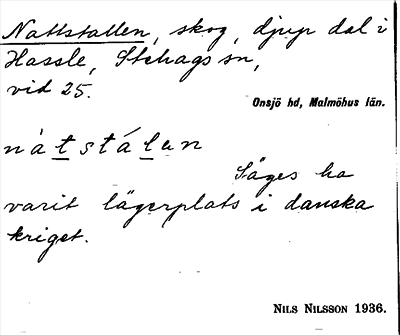 Nattstallen, skog, djup dal i
Hassle, Stehags sn,
vid 25.
Onsjö hd, Malmöhus län.
nàtstálen
Säges ha
varit lägerplats i danska
kriget.
NILS NILSSON 1936.